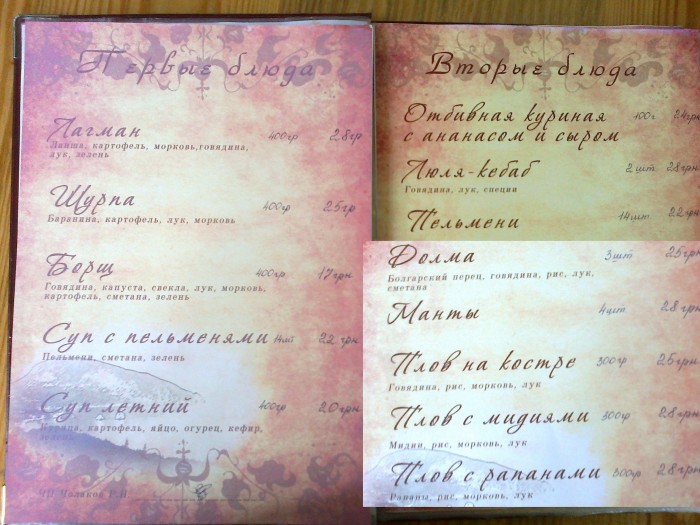 Первые блюда
Лагман 400гр 28гр
Лапша, картофель, морковь,говядина,
лук, зелень
Шурпа 400гр 25гр
Баранина, картофель, лук, морковь
Борщ 400гр 17грн
Говядина, капуста, свекла, лук, морковь,
картофель, сметана, зелень
Суп с пельменями 14шт 22грн
Пельмени, сметана, зелень
Суп летний 400гр 20грн
картофель, яйцо, огурец, кефир,
Вторые блюда
Отбивная куриная 100г 24грн
с ананасом и сыром
Люля-кебаб 2шт. 28грн
Говядина, лук, специи
Пельмени 14шт. 22грн
Долма 3шт 25грн
Болгарский перец, говядина, рис, лук,
сметана
Манты 4шт 28грн
Плов на костре 300гр 25грн
Говядина, рис, морковь, лук
Плов с мидиями 300гр 28грн
Мидии, рис, морковь, лук
Плов с рапанами 300гр 28грн
Рапаны, рис, морковь, лук